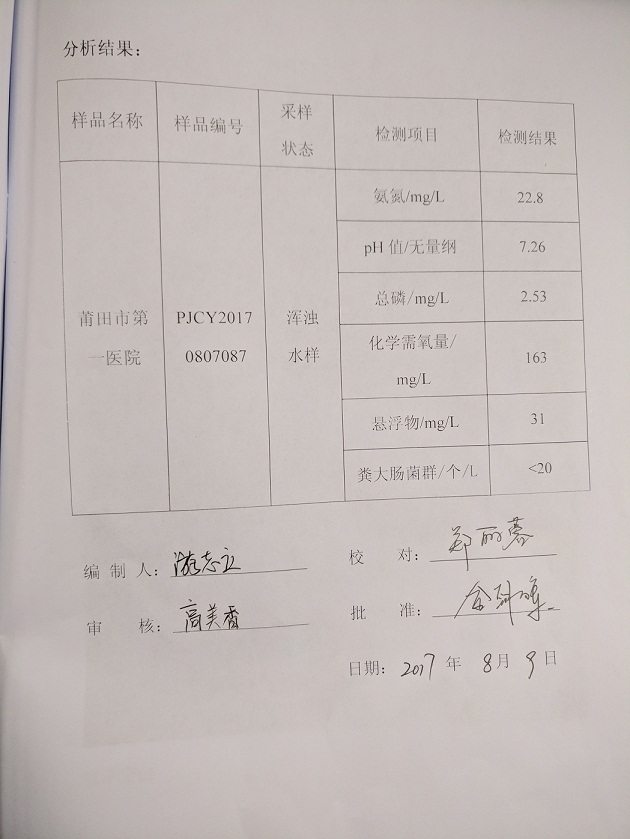 分析结果：
样品名称 样品编号 采样状态 检测项目 检测结果
莆田市第一医院 PJCY20170807087 浑浊水样 氨氮/mg/L 22.8
pH 值/无量纲 7.26
总磷/mg/L 2.53
化学需氧量/mg/L 163
悬浮物/mg/L 31
粪大肠菌群/个/L <20
编 制 人：游志立 校 对：郑丽蓉
审 核：高美香 批 准：
日期：2017 年 8 月 9 日